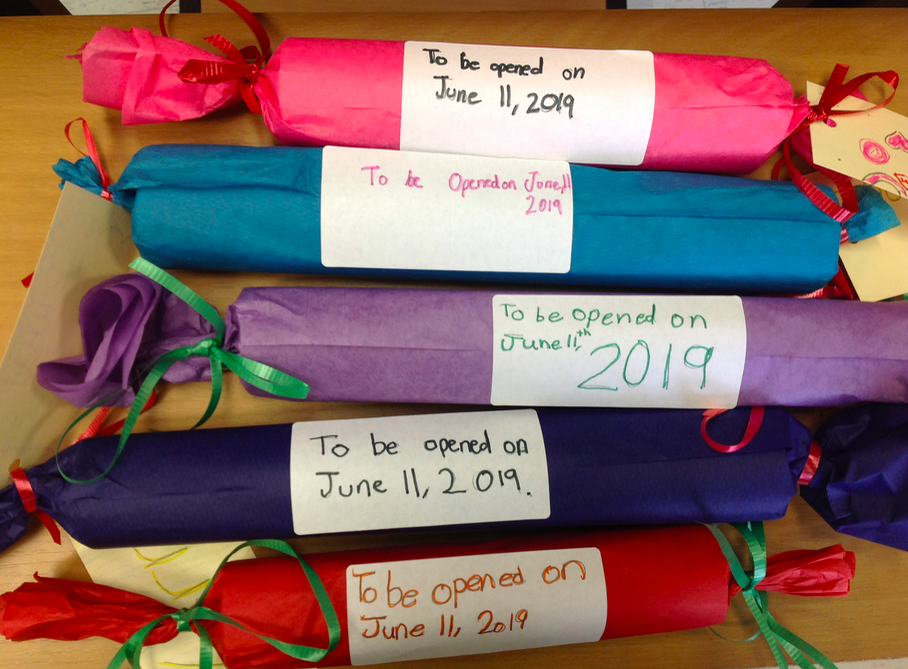 To be opened on
June 11, 2019
To be Opened on June, 11
2019
To be opened on
June 11,th
2019
To be opened on
June 11, 2019.
To be opened on
June 11, 2019